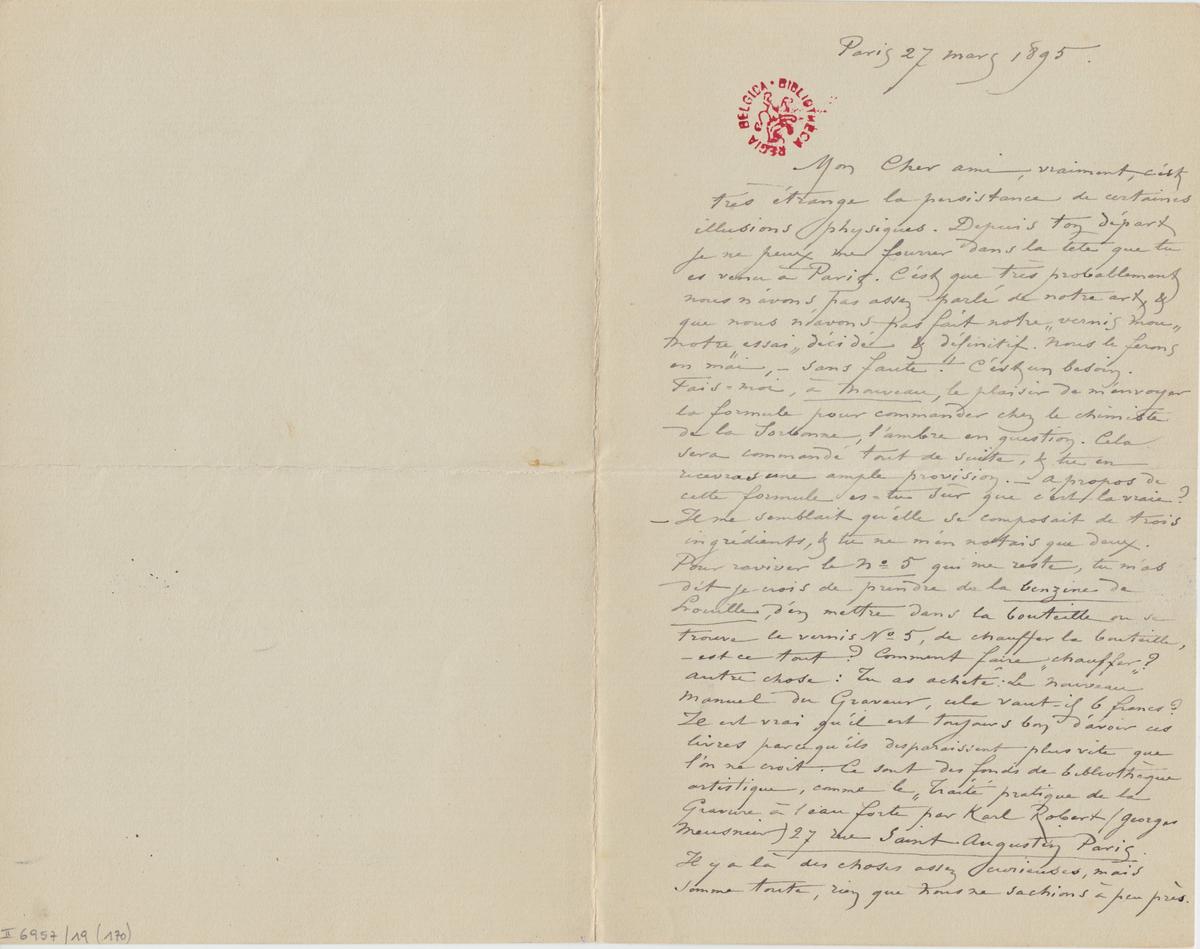 Paris 27 mars 1895.
REGIA BELGICA · BIBLIOTHECA
Mon Cher ami, vraiment, c'est
très étrange la persistance de certaines
illusions physiques. Depuis ton départ
je ne peux me fourrer dans la tête que tu
es venu à Paris. C'est que très probablement
nous n'avons pas assez parlé de notre art, &
que nous n'avons pas fait notre „vernis mou„
notre essai„ décidé & définitif. Nous le ferons
en mai, – sans faute! C'est un besoin.
Fais-moi, à nouveau, le plaisir de m'envoyer
la formule pour commander chez le chimiste
de la Sorbonne, l'ambre en question. Cela
sera commandé tout de suite, & tu en
recevras une ample provision. – a propos de
cette formule es-tu sûr que c'est la vraie?
– Il me semblait qu'elle se composait de trois
ingrédients, & tu ne m'en notais que deux.
Pour raviver le No 5 qui me reste, tu m'as
dit je crois de prendre de la benzine de
houille, d'en mettre dans la bouteille ou se
trouve le vernis No 5, de chauffer la bouteille,
– est ce tout? Comment faire „chauffer„?
autre chose: Tu as acheté: Le nouveau
Manuel du Graveur, cela vaut-il 6 francs?
Il est vrai qu'il est toujours bon d'avoir ces
livres parcequ'ils disparaissent plus vite que
l'on ne croit. Ce sont des fonds de bibliothèque
artistique, comme le „Traité pratique de la
Gravure à l'eau forte par Karl Robert (georges
Meusnier) 27 rue Saint Augustin Paris.
Il y a là des choses assez curieuses, mais
somme toute, rien que nous ne sachions à peu près.
II 6957/19 (170)